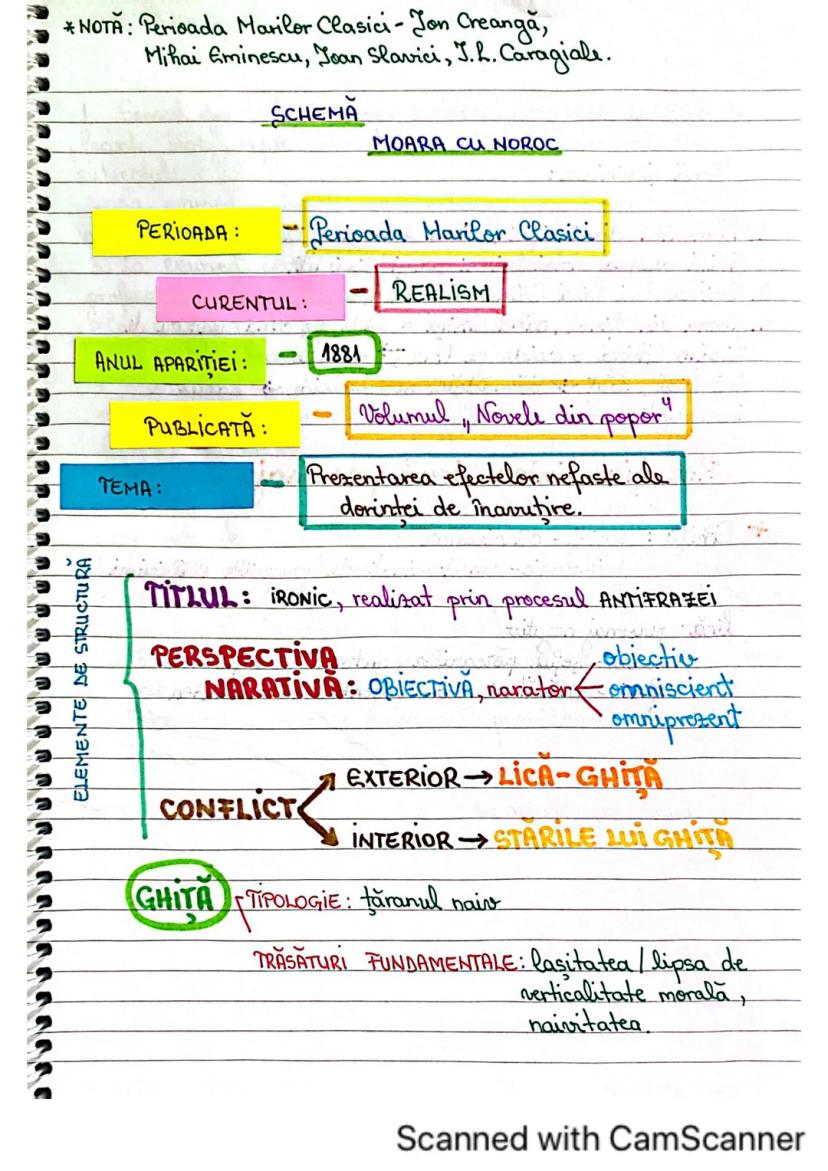 *NOTĂ: Perioada Marilor Clasici - Ion Creangă,
Mihai Eminescu, Ioan Slavici, I.L. Caragiale.
SCHEMĂ
MOARA CU NOROC
PERIOADA: - Perioada Marilor Clasici
CURENTUL: - REALISM
ANUL APARIȚIEI: - 1881
PUBLICATĂ: - Volumul „Novele din popor"
TEMA: - Prezentarea efectelor nefaste ale
dorinței de înavuțire.
ELEMENTE DE STRUCTURĂ
TITLUL: IRONIC, realizat prin procesul ANTIFRAZEI
PERSPECTIVA
NARATIVĂ: OBIECTIVĂ, narator
obiectiv
omniscient
omniprezent
CONFLICT
EXTERIOR → LICĂ - GHIȚĂ
INTERIOR → STĂRILE LUI GHIȚĂ
GHIȚĂ TIPOLOGIE: țăranul naiv
TRĂSĂTURI FUNDAMENTALE: lașitatea / lipsa de
verticalitate morală,
naivitatea.
Scanned with CamScanner